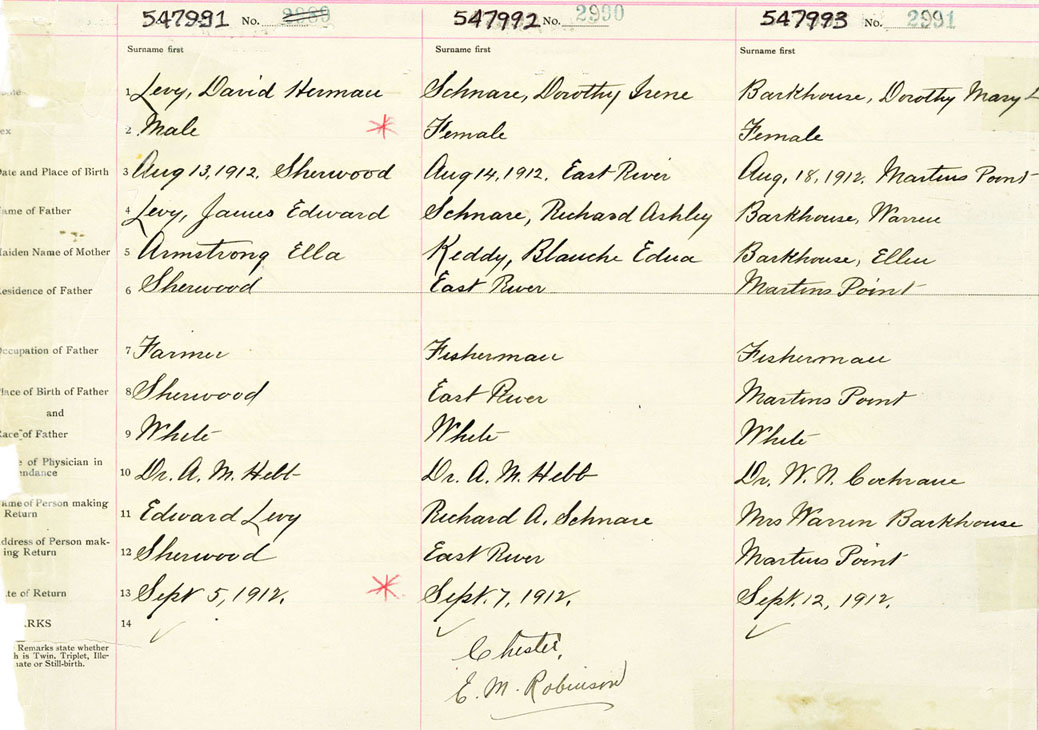 547991 No. 2989 547992 No. 2990 547993 No. 2991
Surname first Surname first Surname first
1 Levy, David Herman Schnare, Dorothy Irene Barkhouse, Dorothy Mary
ex 2 Male Female Female
Date and Place of Birth 3 Aug 13, 1912. Sherwood Aug 14, 1912. East River Aug. 18, 1912. Martins Point
ame of Father 4 Levy, James Edward Schnare, Richard Ashley Barkhouse, Warren
aiden Name of Mother 5 Armstrong Ella Keddy, Blanche Edna Barkhouse, Ellen
esidence of Father 6 Sherwood East River Martins Point
Occupation of Father 7 Farmer Fisherman Fisherman
lace of Birth of Father 8 Sherwood East River Martins Point
and
Race of Father 9 White White White
e of Physician in
endance 10 Dr. A. M. Hebb Dr. A. M. Hebb Dr. W. N. Cochrane
ame of Person making
Return 11 Edward Levy Richard A. Schnare Mrs Warren Barkhouse
ddress of Person mak-
ing Return 12 Sherwood East River Martins Point
te of Return 13 Sept 5, 1912. Sept. 7, 1912. Sept. 12, 1912.
RKS 14
Remarks state whether
h is Twin, Triplet, Ille-
nate or Still-birth.
Chester,
E. M. Robinson